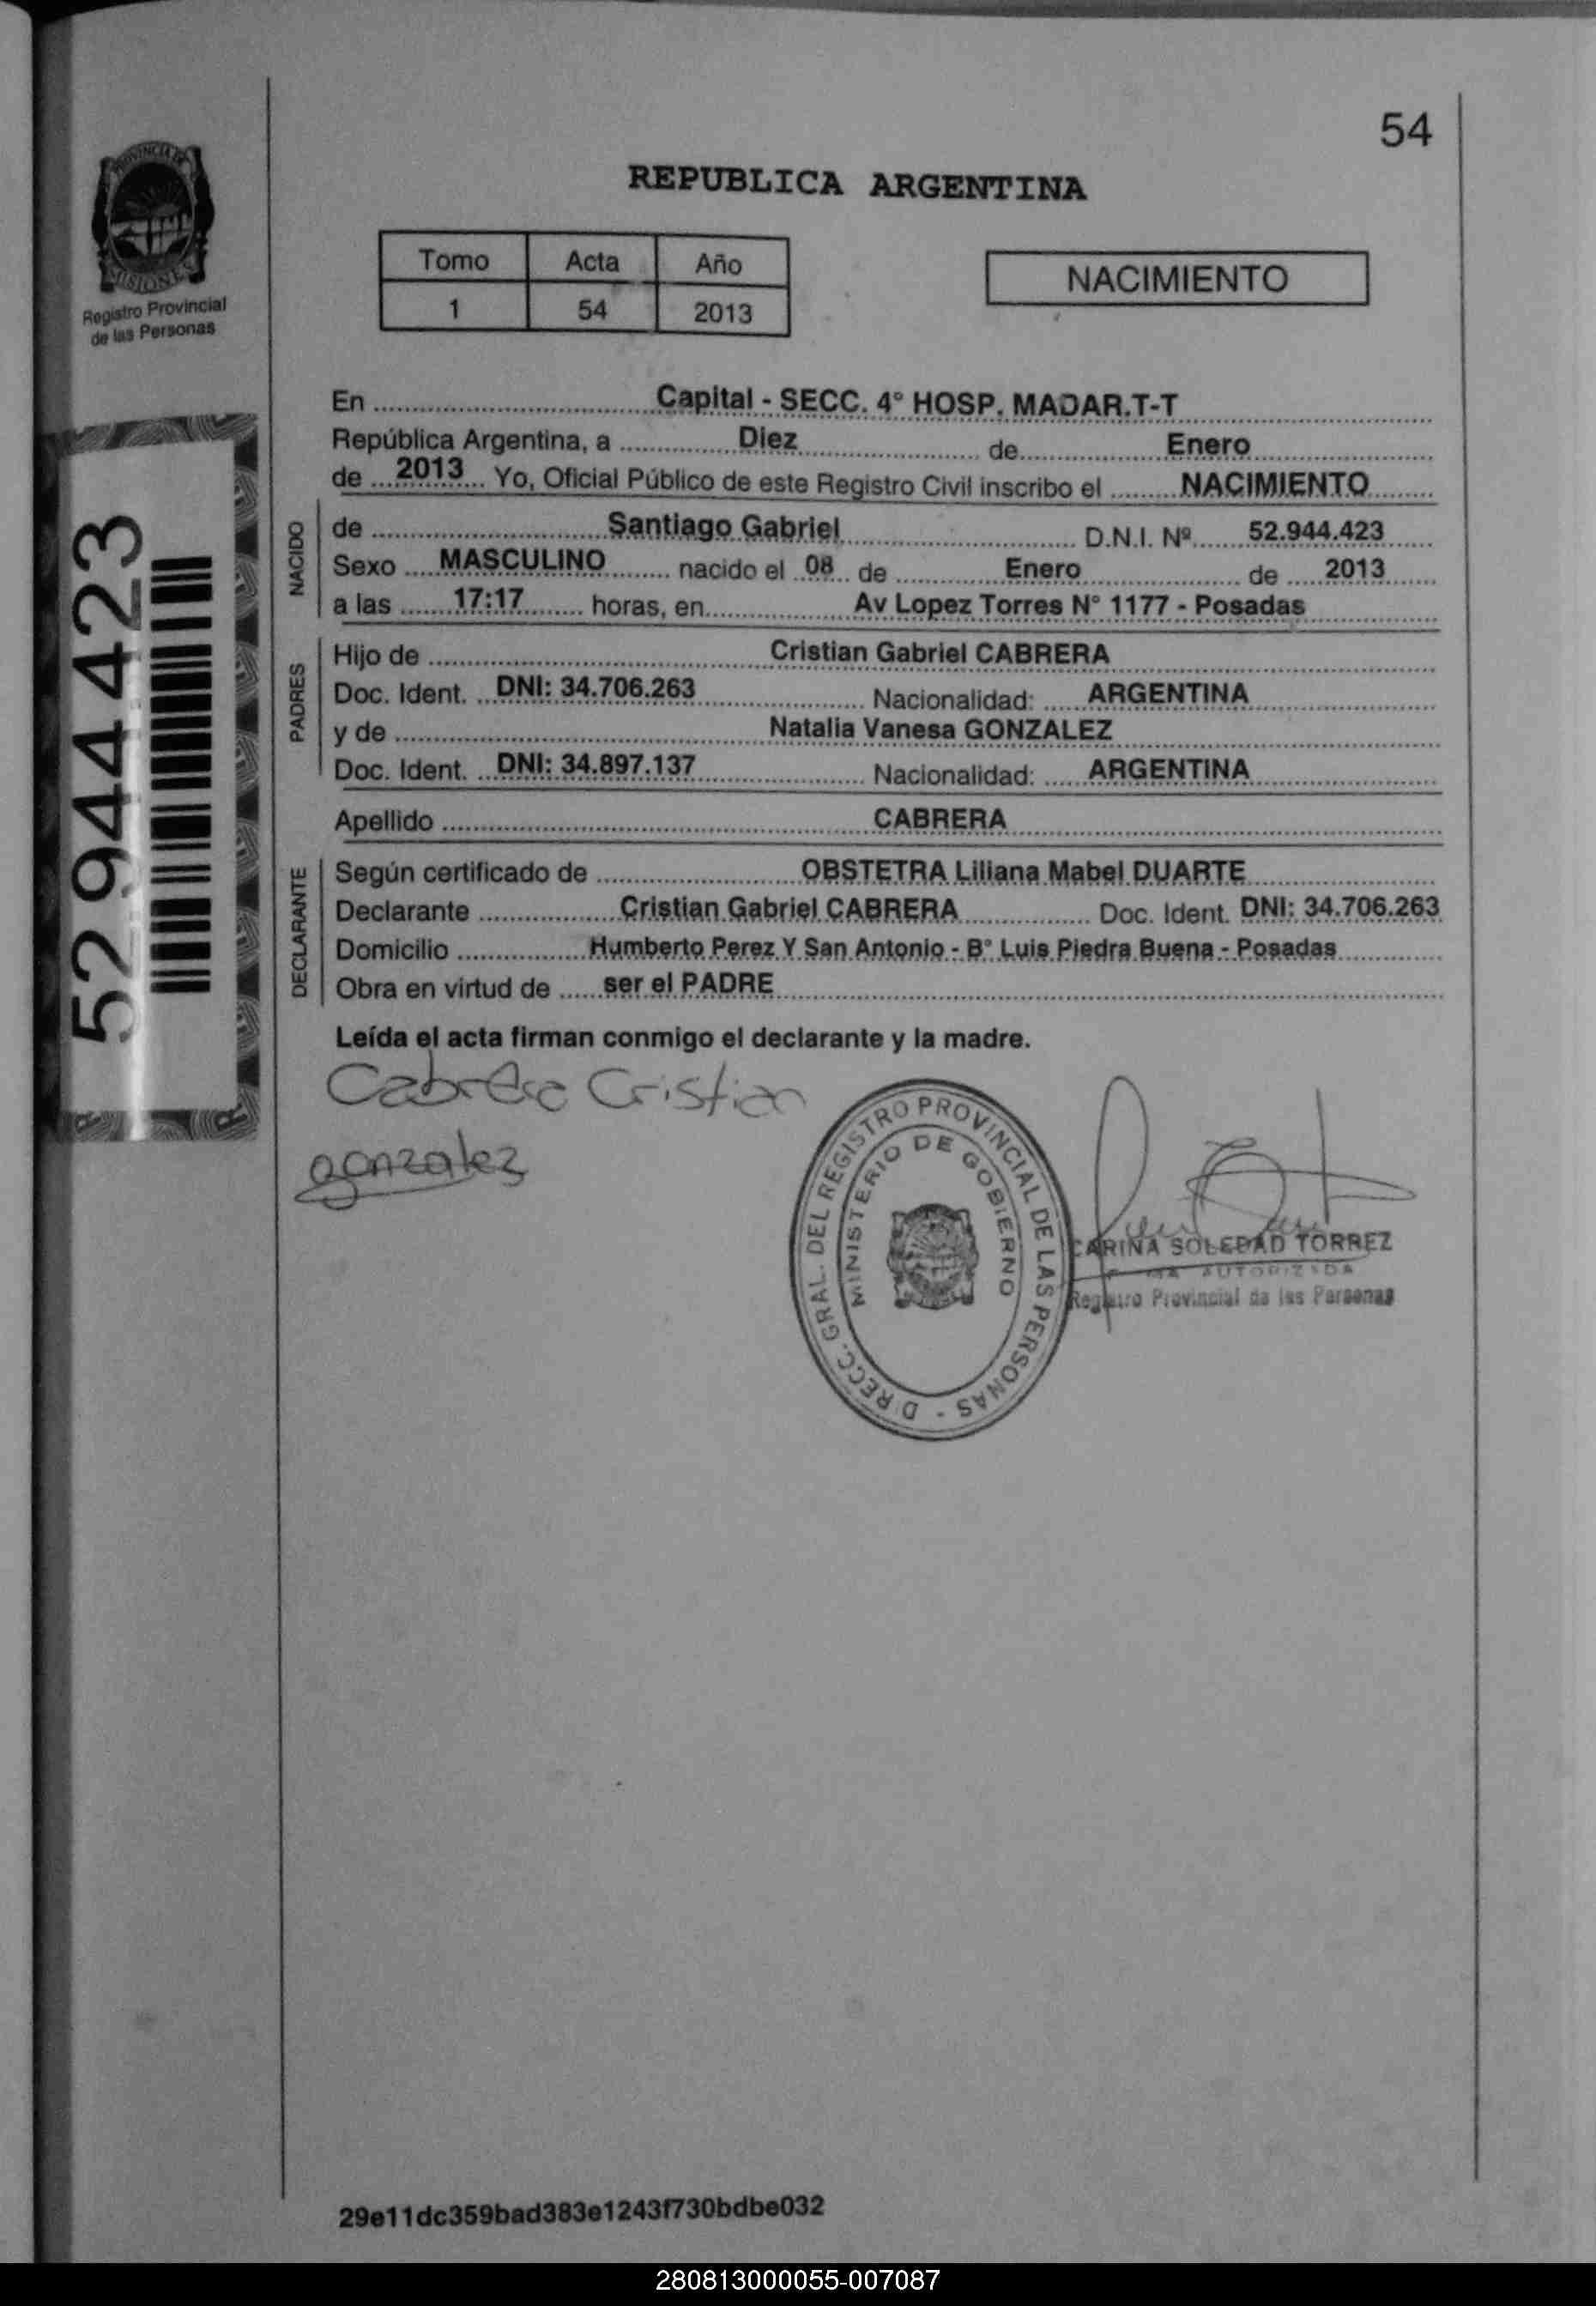 54
PROVINCIA DE
MISIONES
Registro Provincial
de las Personas
REPUBLICA ARGENTINA
Tomo Acta Año
1 54 2013
NACIMIENTO
En Capital - SECC. 4° HOSP. MADAR.T-T
República Argentina, a Diez de Enero
de 2013 Yo, Oficial Público de este Registro Civil inscribo el NACIMIENTO
NACIDO
de Santiago Gabriel D.N.I. Nº 52.944.423
Sexo MASCULINO nacido el 08 de Enero de 2013
a las 17:17 horas, en Av Lopez Torres N° 1177 - Posadas
PADRES
Hijo de Cristian Gabriel CABRERA
Doc. Ident. DNI: 34.706.263 Nacionalidad: ARGENTINA
y de Natalia Vanesa GONZALEZ
Doc. Ident. DNI: 34.897.137 Nacionalidad: ARGENTINA
Apellido CABRERA
DECLARANTE
Según certificado de OBSTETRA Liliana Mabel DUARTE
Declarante Cristian Gabriel CABRERA Doc. Ident. DNI: 34.706.263
Domicilio Humberto Perez Y San Antonio - B° Luis Piedra Buena - Posadas
Obra en virtud de ser el PADRE
52 944 423
Leída el acta firman conmigo el declarante y la madre.
Cabrera Cristian
gonzalez
DIRECC. GRAL. DEL REGISTRO PROVINCIAL DE LAS PERSONAS -
MINISTERIO DE GOBIERNO
CARINA SOLEDAD TORREZ
AUTORIZADA
Registro Provincial de las Personas
29e11dc359bad383e1243f730bdbe032
280813000055-007087